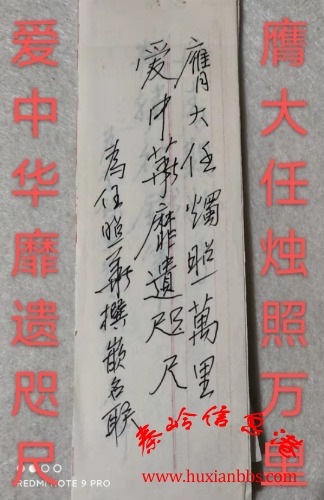 膺大任烛照万里
爱中华靡遗咫尺
膺大任燭照萬里
爱中華靡遺咫尺
為任照華撰嵌名联
秦岭信息港
www.huxianbbs.com
REDMI NOTE 9 PRO